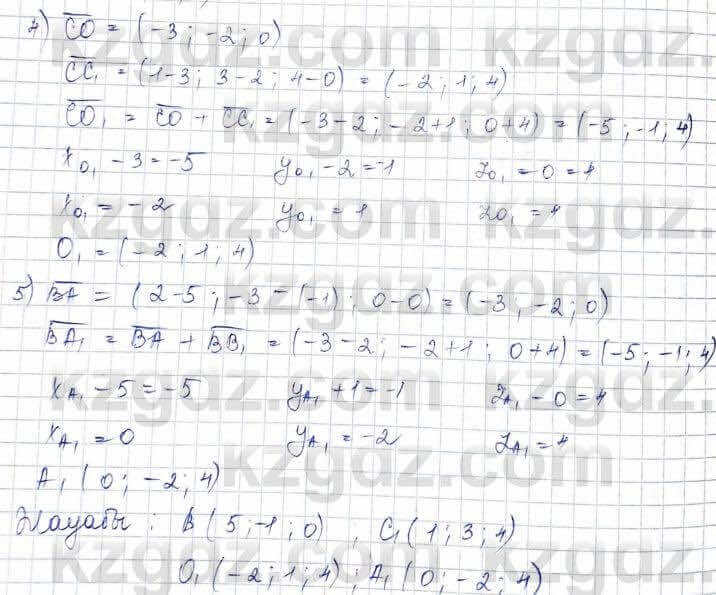 4) CO = (-3; -2; 0)
CC₁ = (1-3; 3-2; 4-0) = (-2; 1; 4)
CO₁ = CO + CC₁ = (-3-2; -2+1; 0+4) = (-5; -1; 4)
x₀₁ - 3 = -5 y₀₁ - 2 = -1 z₀₁ - 0 = 4
x₀₁ = -2 y₀₁ = 1 z₀₁ = 4
O₁ = (-2; 1; 4)
5) BA = (2-5; -3-(-1); 0-0) = (-3; -2; 0)
BA₁ = BA + BB₁ = (-3-2; -2+1; 0+4) = (-5; -1; 4)
x_A₁ - 5 = -5 y_A₁ + 1 = -1 z_A₁ - 0 = 4
x_A₁ = 0 y_A₁ = -2 z_A₁ = 4
A₁(0; -2; 4)
Жауабы: B(5; -1; 0), C₁(1; 3; 4)
O₁(-2; 1; 4); A₁(0; -2; 4)
kzgdz.com